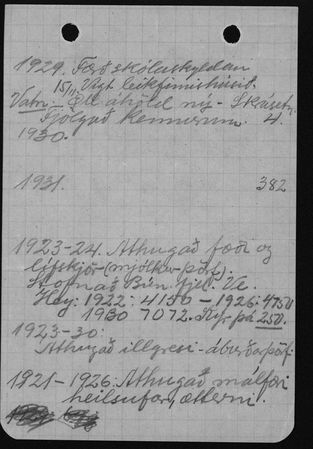 1929. Ferð skólaskyldan
15/11 Vígt leikfimishúsið.
Vatn. - Öll áhöld ný - Skráset.
Fjölgað kennurum. 4.
1930.
1931. 382
1923-24. Athugað fæði og
lífskjör (mjólkurþörf).
Stofnað Bún.fjel. Ve.
Hey: 1922: 4150 - 1926: 4750
1930 7072. Kýr þá 250.
1923-30:
Athugað illgresi - áburðarþörf.
1921-1926: Athugað málfæri
heilsufar, ætterni.